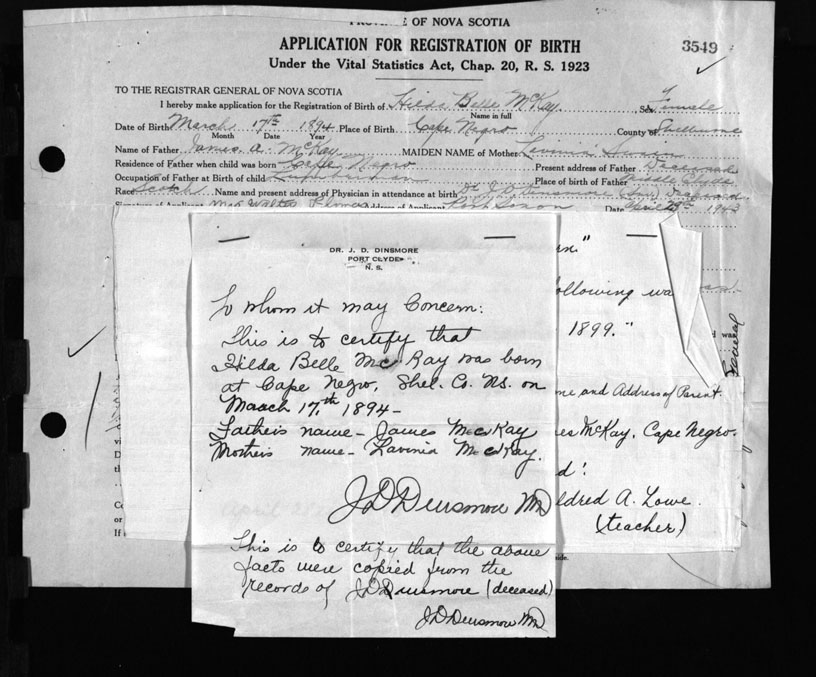 OF NOVA SCOTIA
APPLICATION FOR REGISTRATION OF BIRTH
3549
Under the Vital Statistics Act, Chap. 20, R. S. 1923
TO THE REGISTRAR GENERAL OF NOVA SCOTIA
I hereby make application for the Registration of Birth of Hilda Belle McKay Sex Female
Name in full
Date of Birth March 17th 1894 Place of Birth Cape Negro County of Shelburne
Month Date Year
Name of Father James A. McKay MAIDEN NAME of Mother Lavinia
Residence of Father when child was born Cape Negro Present address of Father Deceased
Occupation of Father at Birth of child Place of birth of Father
Race Scotch Name and present address of Physician in attendance at birth Dr J D Dinsmore
Signature of Applicant Mrs Walter Address of Applicant Port Saxon Date 1943
DR. J. D. DINSMORE
PORT CLYDE
N. S.
To whom it may Concern:
This is to certify that
Hilda Belle McKay was born
at Cape Negro, Shel. Co. N.S. on
March 17th 1894 -
Father's name - James McKay
Mother's name - Lavinia McKay.
J D Densmore MD
This is to certify that the above
facts were copied from the
records of J D Densmore (deceased)
J D Densmore MD
ollowing wa
1899."
me and Address of Parent.
es McKay, Cape Negro.
ldred A. Lowe.
(teacher)